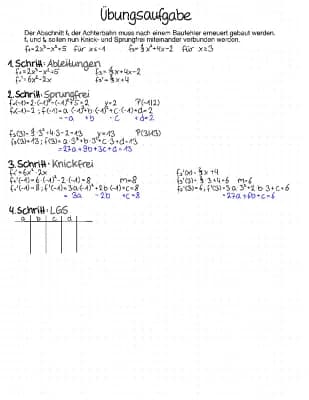 Übungsaufgabe
Der Abschnitt f₂ der Achterbahn muss nach einem Baufehler erneuert werden.
f₁ und f₃ sollen nun Knick- und Sprungfrei miteinander verbunden werden.
f₁=2x³-x²+5 für x≤-1 f₃= x²+4x-2 für x≥3
1. Schritt: Ableitungen
f₁=2x³-x²+5 f₃= x²+4x-2
f₁'=6x²-2x f₃'= x+4
2. Schritt: Sprungfrei
f₁(-1)=2·(-1)³-(-1)²+5=2 y=2 P(-1|2)
f₂(-1)=2 ; f(-1)=a·(-1)³+b·(-1)²+c·(-1)+d=2
=-a +b -c +d=2
f₃(3)= ·3²+4·3-2=13 y=13 P(3|13)
f₂(3)=13 ; f(3)=a·3³+b·3²+c·3+d=13
=27a+9b+3c+d=13
3. Schritt: Knickfrei
f₁'=6x²-2x f₃'(x)= x+4
f₁'(-1)=6·(-1)²-2·(-1)=8 m=8 f₃'(3)= ·3+4=6 m=6
f₂'(-1)=8 ; f'(-1)=3a·(-1)²+2b·(-1)+c=8 f₂'(3)=6 ; f'(3)=3a·3²+2b·3+c=6
=3a -2b +c=8 =27a+6b+c=6
4. Schritt: LGS
a b c d